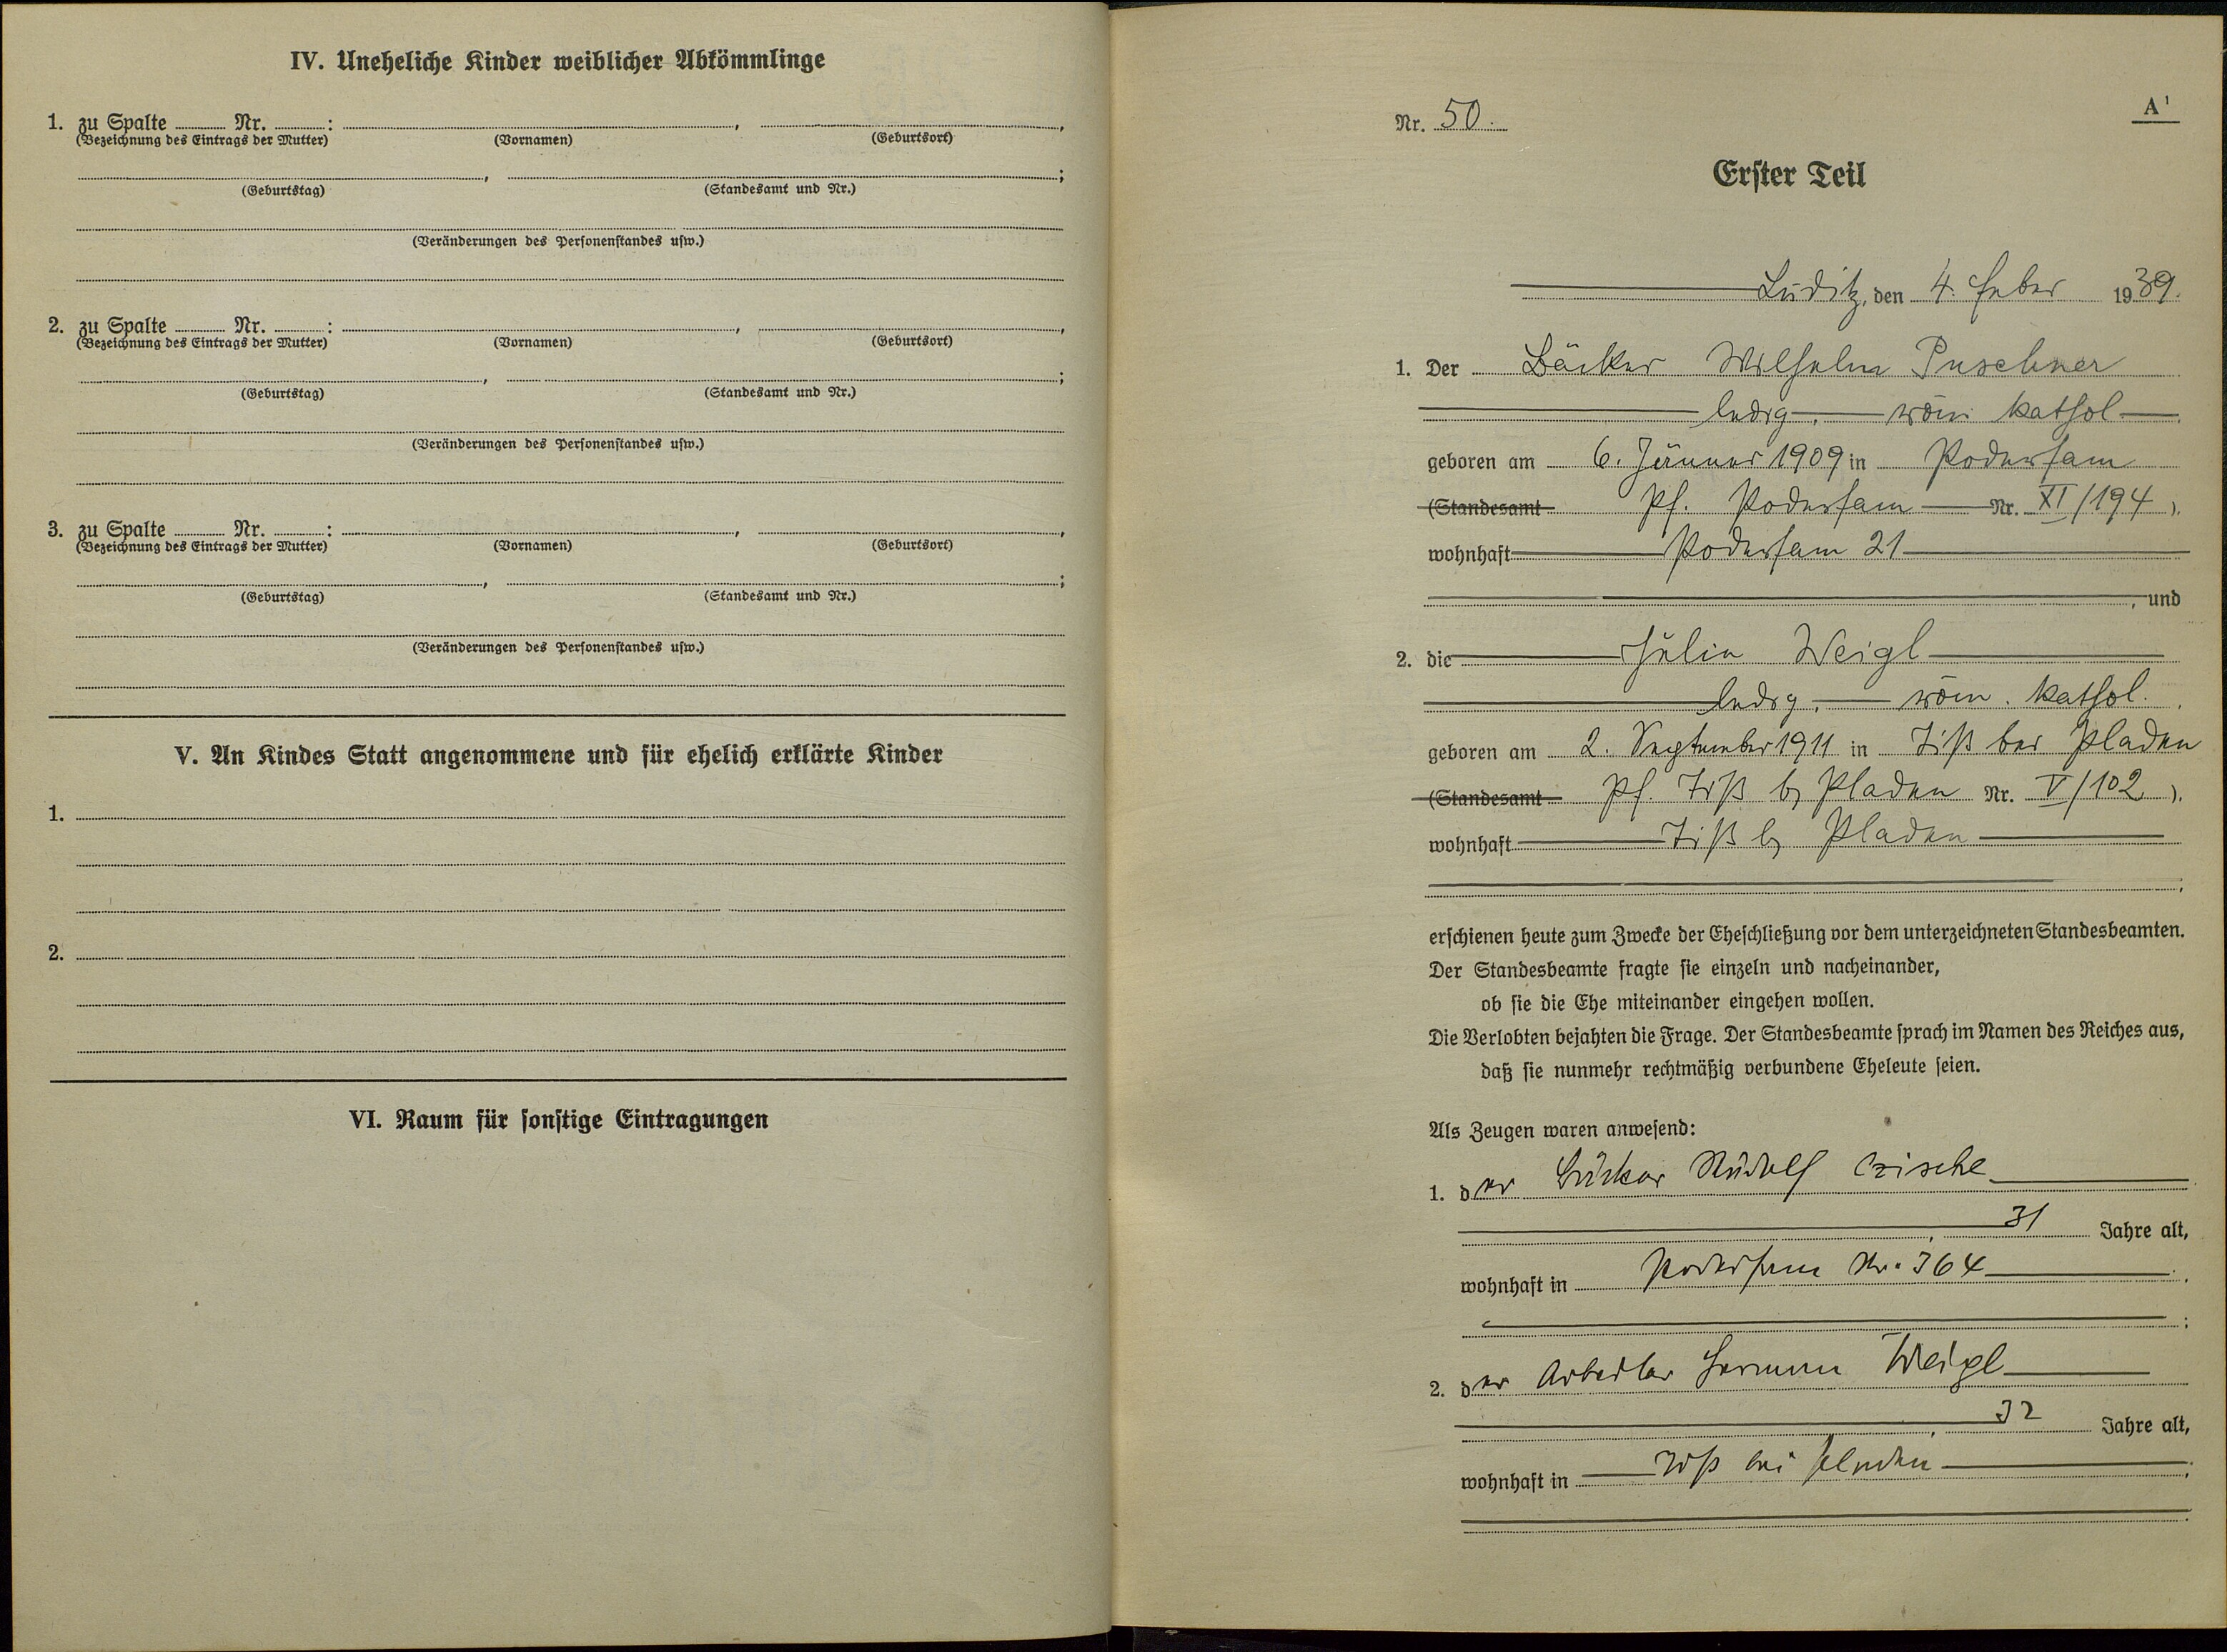 IV. Uneheliche Kinder weiblicher Abkömmlinge
1. zu Spalte ........ Nr. ........ : ........, ........,
(Bezeichnung des Eintrags der Mutter) (Vornamen) (Geburtsort)
........, ........;
(Geburtstag) (Standesamt und Nr.)
(Veränderungen des Personenstandes usw.)
2. zu Spalte ........ Nr. ........ : ........, ........,
(Bezeichnung des Eintrags der Mutter) (Vornamen) (Geburtsort)
........, ........;
(Geburtstag) (Standesamt und Nr.)
(Veränderungen des Personenstandes usw.)
3. zu Spalte ........ Nr. ........ : ........, ........,
(Bezeichnung des Eintrags der Mutter) (Vornamen) (Geburtsort)
........, ........;
(Geburtstag) (Standesamt und Nr.)
(Veränderungen des Personenstandes usw.)
V. An Kindes Statt angenommene und für ehelich erklärte Kinder
1.
2.
VI. Raum für sonstige Eintragungen
Nr. 50.
A¹
Erster Teil
Luditz, den 4. Feber 1939.
1. Der Bäcker Wilhelm Puschner
ledig, röm. kathol.
geboren am 6. Jänner 1909 in Podersam
(Standesamt Pf. Podersam Nr. XI/194).
wohnhaft Podersam 21
, und
2. die Julie Weigl
ledig, röm. kathol.
geboren am 2. September 1911 in Tiß bei Pladen
(Standesamt Pf. Tiß b/ Pladen Nr. V/102).
wohnhaft Tiß b/ Pladen
erschienen heute zum Zwecke der Eheschließung vor dem unterzeichneten Standesbeamten.
Der Standesbeamte fragte sie einzeln und nacheinander,
ob sie die Ehe miteinander eingehen wollen.
Die Verlobten bejahten die Frage. Der Standesbeamte sprach im Namen des Reiches aus,
daß sie nunmehr rechtmäßig verbundene Eheleute seien.
Als Zeugen waren anwesend:
1. der Bäcker Rudolf Czische
31 Jahre alt,
wohnhaft in Podersam Nr. 364
2. der Arbeiter Herman Weigl
32 Jahre alt,
wohnhaft in Tiß bei Pladen